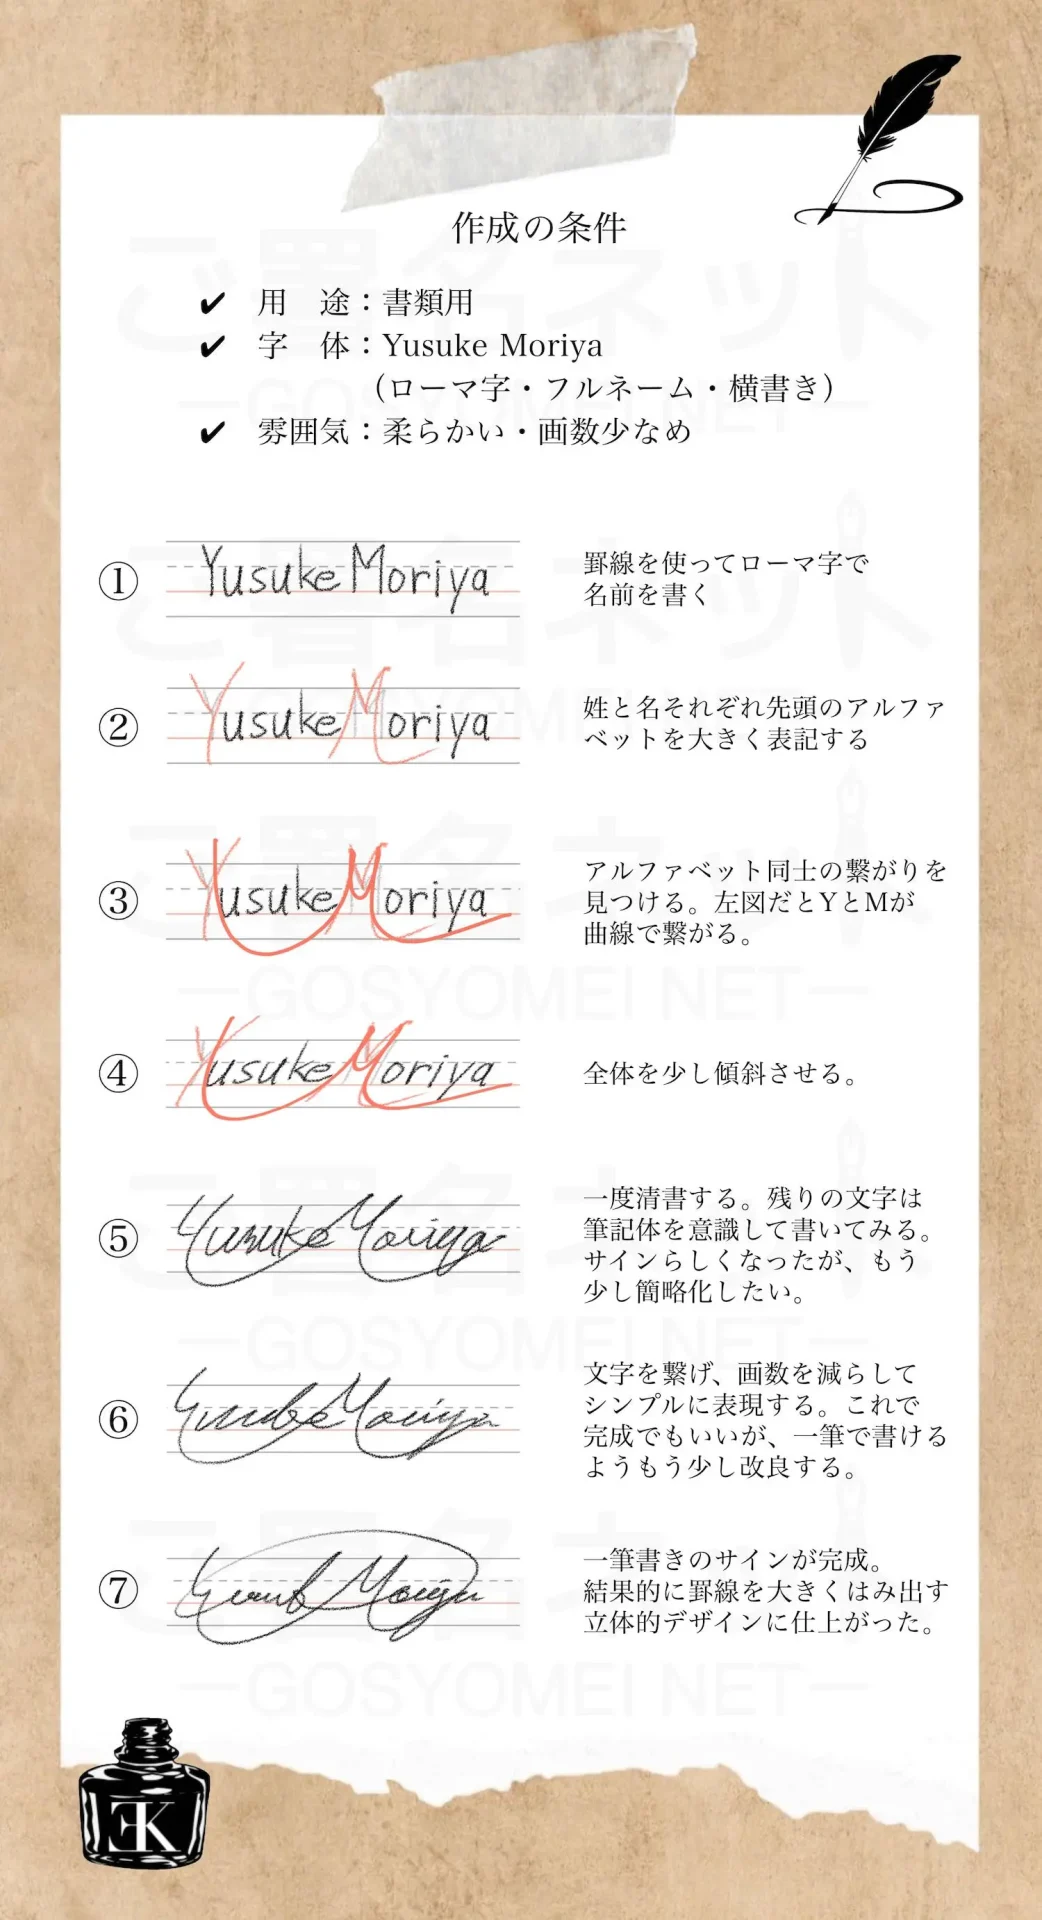 作成の条件
✔ 用　途：書類用
✔ 字　体：Yusuke Moriya
（ローマ字・フルネーム・横書き）
✔ 雰囲気：柔らかい・画数少なめ
① Yusuke Moriya
罫線を使ってローマ字で
名前を書く
② Yusuke Moriya
姓と名それぞれ先頭のアルファ
ベットを大きく表記する
③ Yusuke Moriya
アルファベット同士の繋がりを
見つける。左図だとYとMが
曲線で繋がる。
④ Yusuke Moriya
全体を少し傾斜させる。
⑤ Yusuke Moriya
一度清書する。残りの文字は
筆記体を意識して書いてみる。
サインらしくなったが、もう
少し簡略化したい。
⑥ Yusuke Moriya
文字を繋げ、画数を減らして
シンプルに表現する。これで
完成でもいいが、一筆で書ける
ようもう少し改良する。
⑦
一筆書きのサインが完成。
結果的に罫線を大きくはみ出す
立体的デザインに仕上がった。
ご署名ネット
GOSYOMEI NET